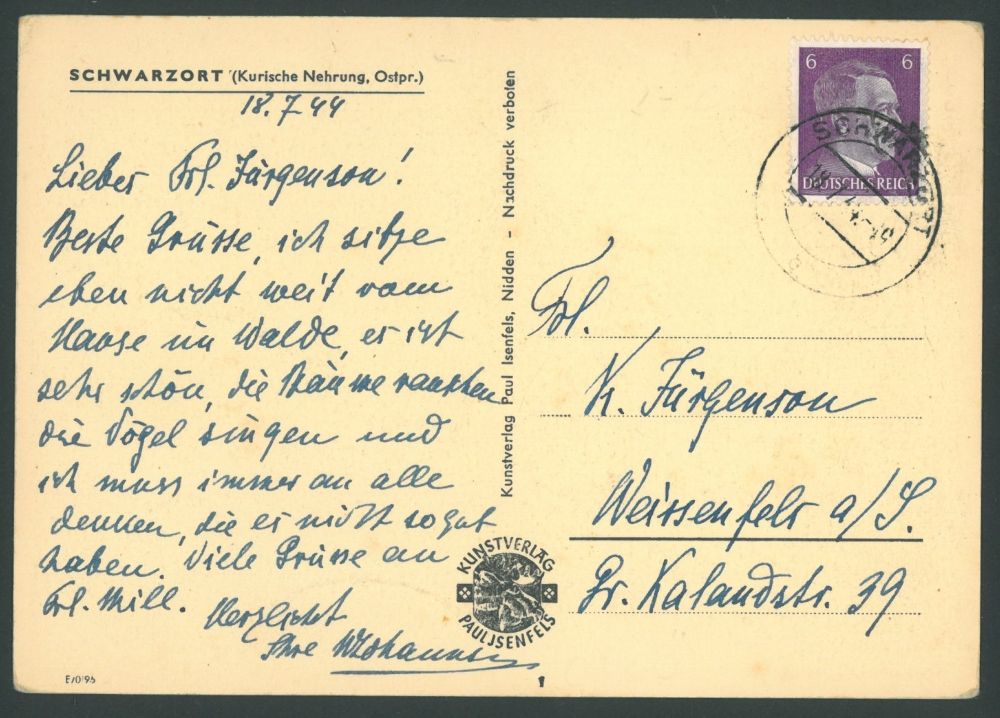 SCHWARZORT (Kurische Nehrung, Ostpr.)
18.7.44
Lieber Frl. Jürgenson!
Beste Grüsse, ich sitze
eben nicht weit vom
Hause im Walde, es ist
sehr schön, die Bäume rauschen
die Vögel singen und
ich muss immer an alle
denken, die es nicht so gut
haben. Viele Grüsse an
Frl. Mill.
Herzlichst
Ihre
E/0195
Kunstverlag Paul Isenfels, Nidden - Nachdruck verboten
KUNSTVERLAG
PAUL ISENFELS
6 6
DEUTSCHES REICH
SCHWARZORT
Frl.
K. Jürgenson
Weissenfels a/S.
Gr. Kalandstr. 39